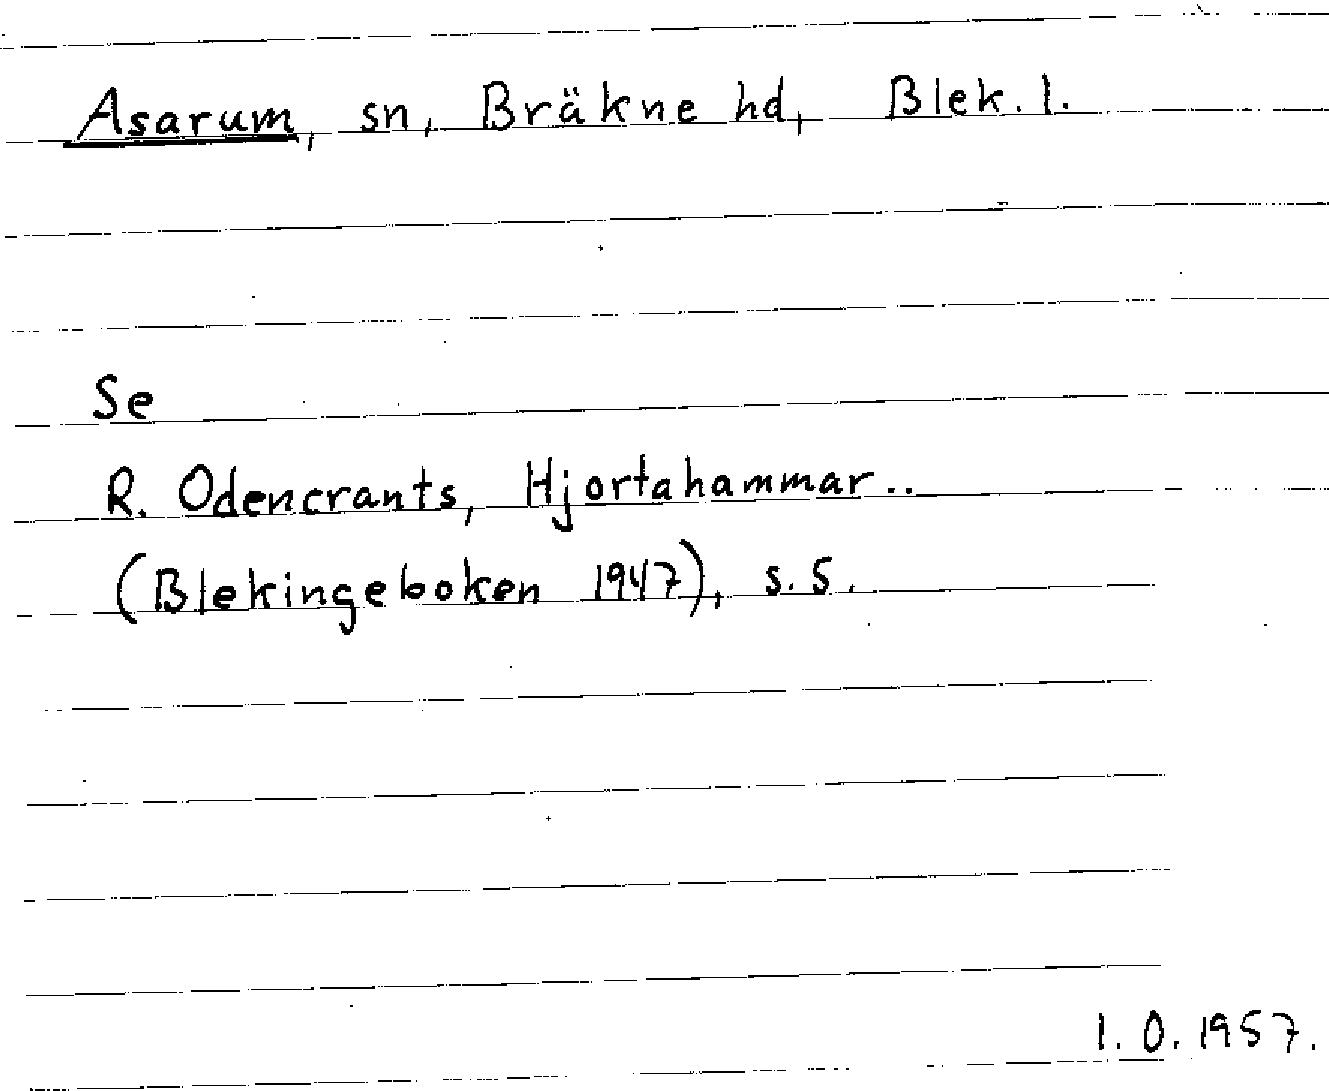 Asarum, sn, Bräkne hd, Blek. l.
Se
R. Odencrants, Hjortahammar..
(Blekingeboken 1947), s. 5.
I. O. 1957.